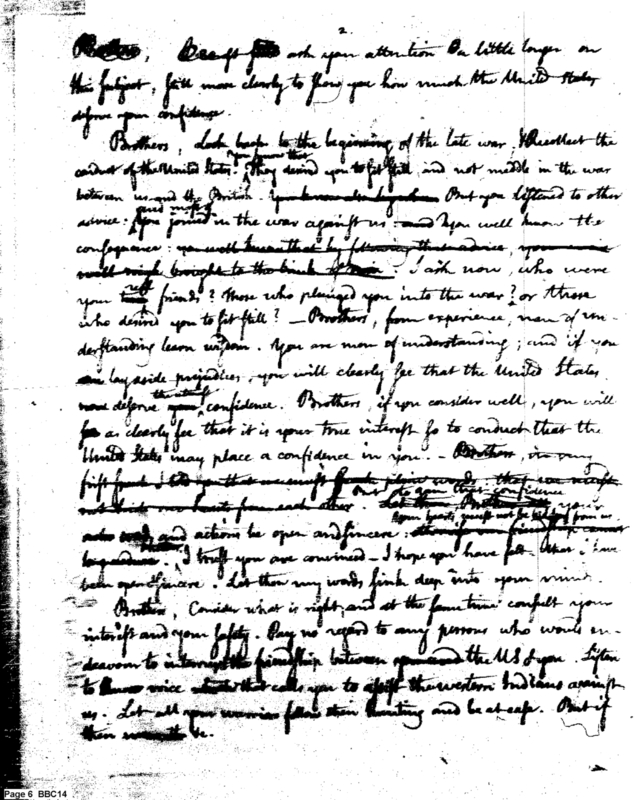 2
Brothers, I must ask your attention a little longer on
this subject, still more clearly to show you how much the United States
deserve your confidence.
Brothers, Look back to the beginning of the late war, & Recollect the
conduct of the United States. You know that They desired you to sit still, and not meddle in the war
between us and the British. But you listened to other
advice: and most of you joined in the war against us and you well know the
consequence: you well know that by following that advice, you were
brought to the brink of ruin. I ask now, who were
your real friends? Those who plunged you into the war? or those
who desired you to sit still? — Brothers, from experience, men of un-
derstanding learn wisdom. You are men of understanding; and if you
lay aside prejudices, you will clearly see that the United States
deserve your confidence. Brothers, if you consider well, you will
as clearly see that it is your true interest so to conduct that the
United States may place a confidence in you. — Brothers,
I told you that we must words: that we must
not hide our hearts from each other. But to gain that confidence your
Your hearts must not be hid from us
and actions be open and sincere
Brothers, I trust you are convinced — I hope you have felt that I have
been open & sincere. Let then my words sink deep into your mind.
Brothers, Consider what is right, and at the same time consult your
interest and your safety. Pay no regard to any persons who would en-
deavour to interrupt the friendship between the US & you. Listen
to voice that calls you to assist the western Indians against
us. Let all your warriors follow their hunting and be at ease. But if
then &c.
Page 6 BBC14